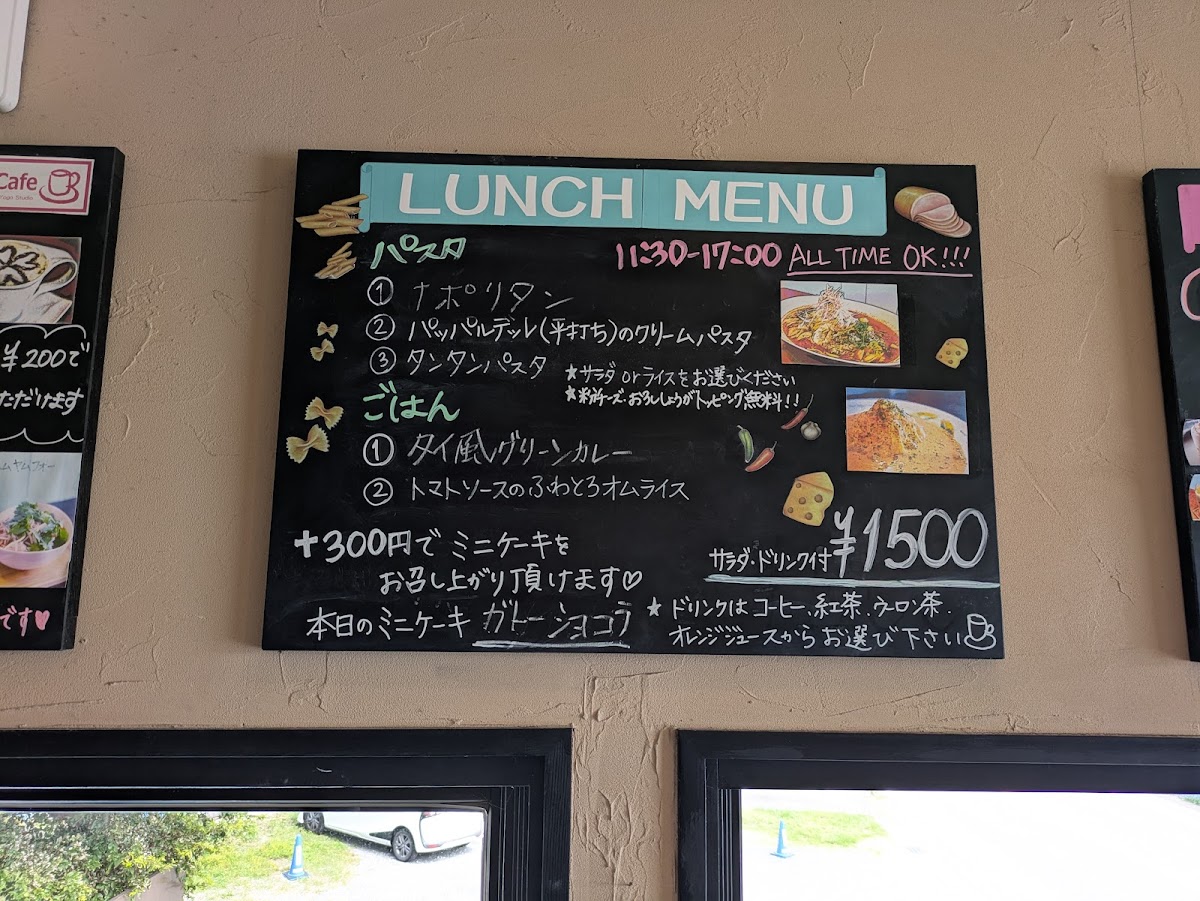 Cafe
¥200で
ただけます
です♥
LUNCH MENU
11:30-17:00 ALL TIME OK!!!
パスタ
① ナポリタン
② パッパルデッレ(平打ち)のクリームパスタ
③ タンタンパスタ
★サラダorライスをお選びください
★粉チーズ・おろししょうがトッピング無料!!
ごはん
① タイ風グリーンカレー
② トマトソースのふわとろオムライス
サラダ・ドリンク付 ¥1500
+300円でミニケーキを
お召し上がり頂けます♡
本日のミニケーキ ガトーショコラ
★ ドリンクはコーヒー、紅茶、ウーロン茶、
オレンジジュースからお選び下さい